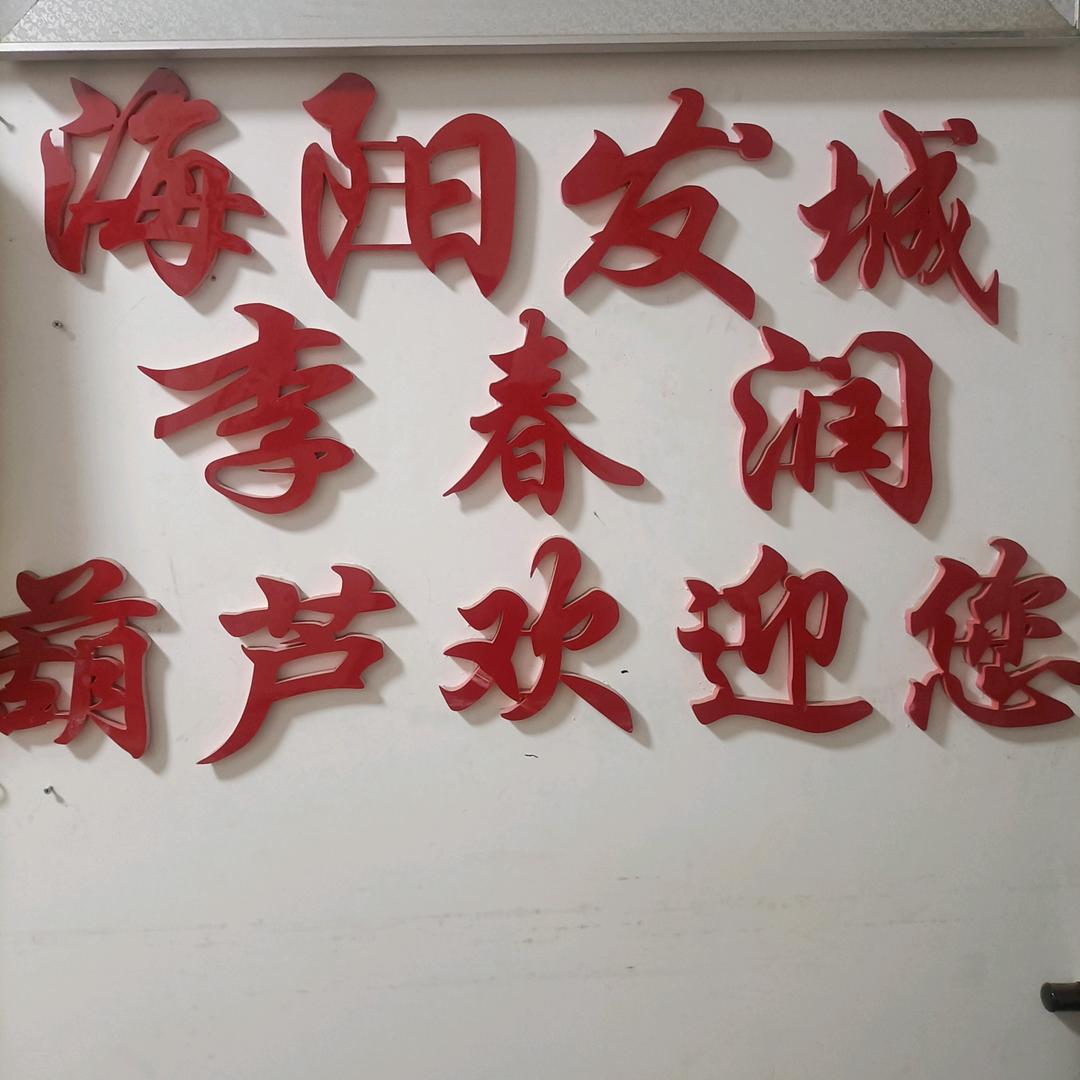 海阳发城
李春润
葫芦欢迎您